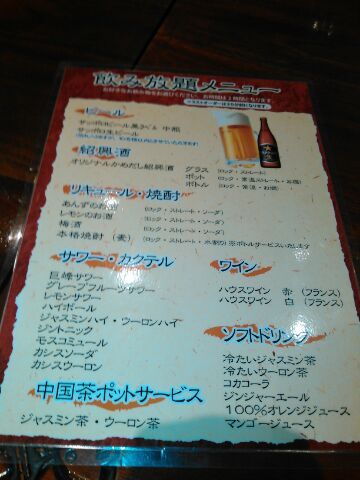 飲み放題メニュー
お好きなお飲み物をお選びください。お時間は2時間となります。
ビール
サッポロビール黒ラベル 中瓶
サッポロ生ビール
紹興酒
オリジナルかめだし紹興酒 グラス (ロック・ストレート)
ポット (ロック・常温ストレート・お燗)
ボトル (ロック・常温・お燗)
リキュール・焼酎
あんずのお酒 (ロック・ストレート・ソーダ)
レモンのお酒 (ロック・ストレート・ソーダ)
梅酒 (ロック・ストレート・ソーダ)
本格焼酎 (麦) (ロック・ストレート・水割り) ※ボトルサービスいたします
サワー・カクテル
巨峰サワー
グレープフルーツサワー
レモンサワー
ハイボール
ジャスミンハイ・ウーロンハイ
ジントニック
モスコミュール
カシスソーダ
カシスウーロン
中国茶ポットサービス
ジャスミン茶・ウーロン茶
ワイン
ハウスワイン 赤 (フランス)
ハウスワイン 白 (フランス)
ソフトドリンク
冷たいジャスミン茶
冷たいウーロン茶
コカコーラ
ジンジャーエール
100%オレンジジュース
マンゴージュース